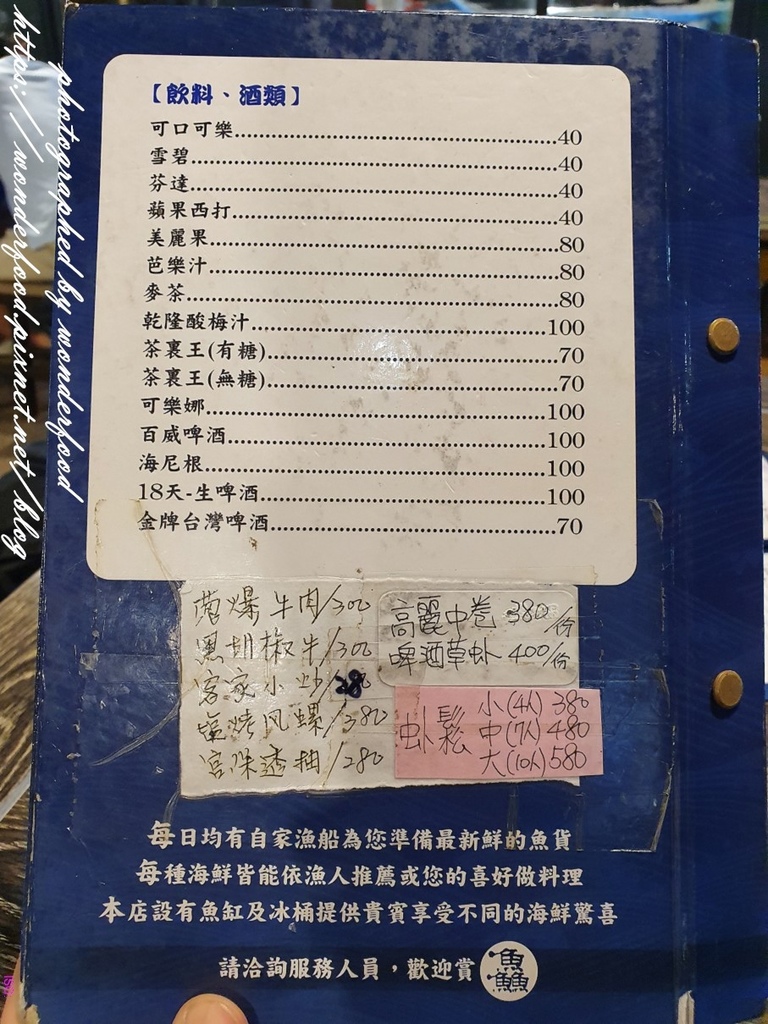 【飲料、酒類】
可口可樂........40
雪碧........40
芬達........40
蘋果西打........40
美麗果........80
芭樂汁........80
麥茶........80
乾隆酸梅汁........100
茶裏王(有糖)........70
茶裏王(無糖)........70
可樂娜........100
百威啤酒........100
海尼根........100
18天-生啤酒........100
金牌台灣啤酒........70
爆牛肉/300
黑胡椒牛/300
客家小炒/280
塩烤风螺/380
宮保透抽/280
高麗中卷 380/份
啤酒草虾 400/份
虾鬆
小(4人) 380
中(7人) 480
大(10人) 580
每日均有自家漁船為您準備最新鮮的魚貨
每種海鮮皆能依漁人推薦或您的喜好做料理
本店設有魚缸及冰桶提供貴賓享受不同的海鮮驚喜
請洽詢服務人員，歡迎賞
photographed by wonderfood
https://wonderfood.pixnet.net/blog